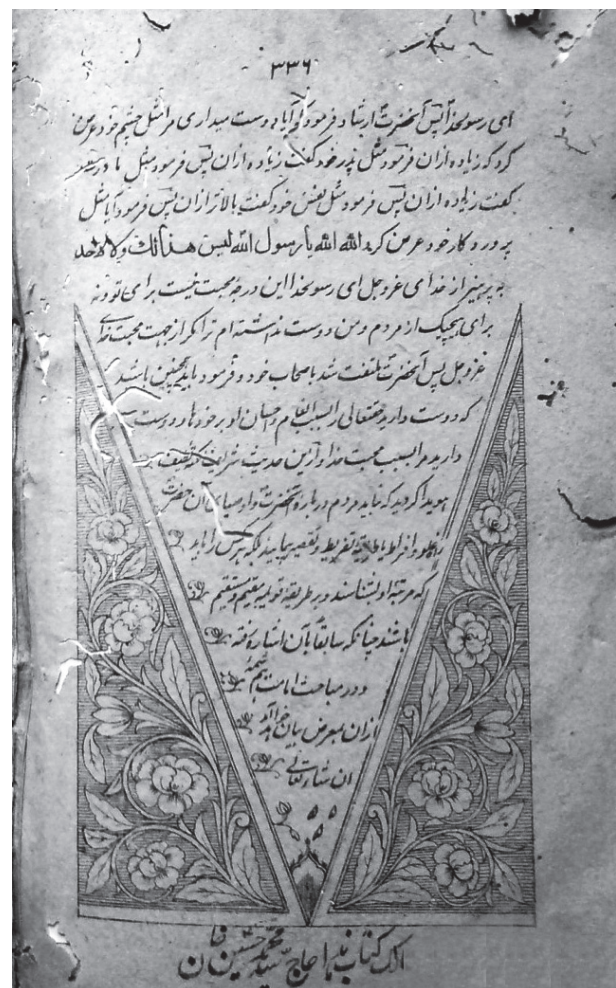 ۳۳۶
ای رسولخدا پس آنحضرت ارشاد فرمود که آیا دوست میداری مرا مثل چشم خود عرض
کرد که زیاده ازان فرمود مثل پدر خود گفت زیاده ازان پس فرمود مثل مادر
گفت زیاده ازان پس فرمود مثل نفس خود گفت بالاتر ازان پس فرمود آیا مثل
پروردگار خود عرض کرد الله الله الله یا رسول الله لیس هذا لک ولا لاحد
به پرهیز از خدای عزوجل ای رسولخدا این درجۀ محبت نیست برای تو و نه
برای هیچیک از مردم و من دوست نداشته ام ترا مگر از جهت محبت خدای
عزوجل پس آنحضرت ملتفت شد باصحاب خود و فرمود باید همچنین باشید
که دوست دارید حقتعالی را بسبب انعام و احسان او بر خود ها و دوست
دارید مرا بسبب محبت خدا و ازین حدیث شریف
هویدا گردید که نباید مردم درباره آنحضرت و اوصیای آن حضرت
راه غلو و افراط یا طریقۀ تفریط و تقصیر پیمایند بلکه هرکس را باید
که مرتبۀ او بشناسند و بر طریقۀ قویم و مستقیم
باشند چنانکه سابقاً بآن اشاره رفته
و در مباحث امامت هم شمۀ
ازان بمعرض بیان خواهد آمد
ان شاء الله تعالی
مالک کتاب هذا حاج سید محمد حسین خان